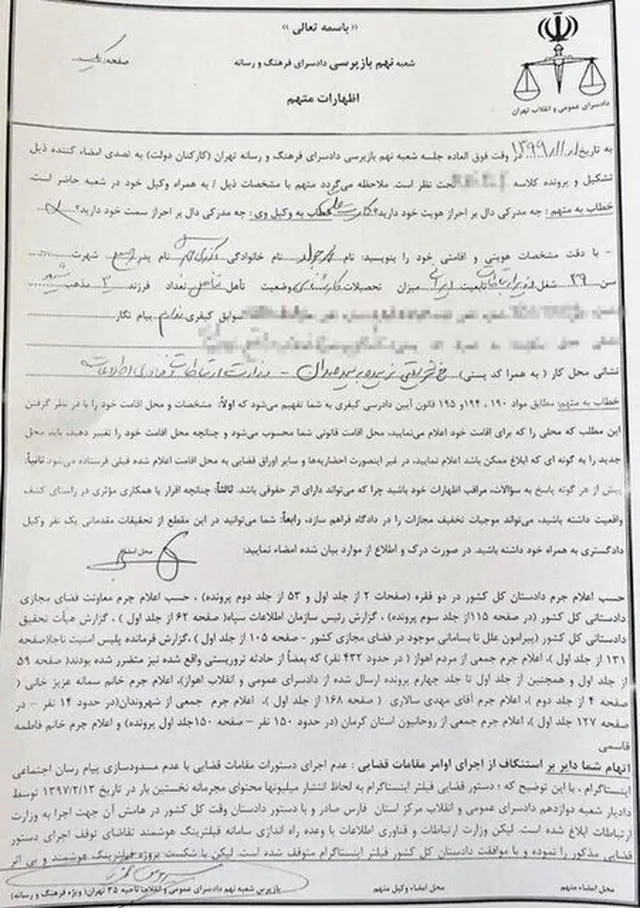 «باسمه تعالی»
شعبه نهم بازپرسی دادسرای فرهنگ و رسانه
صفحه:
اظهارات متهم
دادسرای عمومی و انقلاب تهران
به تاریخ در وقت فوق العاده جلسه شعبه نهم بازپرسی دادسرای فرهنگ و رسانه تهران (کارکنان دولت) به تصدی امضاء کننده ذیل
تشکیل و پرونده کلاسه تحت نظر است. ملاحظه می‌گردد متهم با مشخصات ذیل / به همراه وکیل خود در شعبه حاضر است.
خطاب به متهم: چه مدرکی دال بر احراز هویت خود دارید؟ خطاب به وکیل وی: چه مدرکی دال بر احراز سمت خود دارید؟
- با دقت مشخصات هویتی و اقامتی خود را بنویسید: نام نام خانوادگی نام پدر شهرت
سن ۳۹ شغل وزیر ارتباطات تابعیت ایرانی میزان تحصیلات وضعیت تأهل متاهل تعداد فرزند مذهب
سوابق کیفری ندارم پیام نگار
نشانی محل کار (به همرا کد پستی) وزارت ارتباطات و فناوری اطلاعات
خطاب به متهم: مطابق مواد ۱۹۰، ۱۹۴و ۱۹۵ قانون آیین دادرسی کیفری به شما تفهیم می‌شود که اولاً: مشخصات و محل اقامت خود را با در نظر گرفتن
این مطلب که محلی را که برای اقامت خود اعلام می‌نمایید، محل اقامت قانونی شما محسوب می‌شود و چنانچه محل اقامت خود را تغییر دهید، باید محل
جدید را به گونه ای که ابلاغ ممکن باشد اعلام نمایید، در غیر اینصورت احضاریه‌ها و سایر اوراق قضایی به محل اقامت اعلام شده قبلی فرستاده می‌شود ثانیاً:
پیش از هر گونه پاسخ به سؤالات، مراقب اظهارات خود باشید چرا که می‌تواند دارای اثر حقوقی باشد. ثالثاً: چنانچه اقرار یا همکاری مؤثری در راستای کشف
واقعیت داشته باشید، می‌تواند موجبات تخفیف مجازات را در دادگاه فراهم سازد، رابعاً: شما می‌توانید در این مقطع از تحقیقات مقدماتی یک نفر وکیل
دادگستری به همراه خود داشته باشید. در صورت درک و اطلاع از موارد بیان شده امضاء نمایید: محل امضاء
حسب اعلام جرم دادستان کل کشور در دو فقره (صفحات ۲ از جلد اول و ۵۳ از جلد دوم پرونده) ، حسب اعلام جرم معاونت فضای مجازی
دادستانی کل کشور (در صفحه ۱۱۵از جلد سوم پرونده)، گزارش رئیس سازمان اطلاعات سپاه( صفحه ۶۲ از جلد اول ) ، گزارش هیأت تحقیق
دادستانی کل کشور (پیرامون علل نابسامانی موجود در فضای مجازی کشور - صفحه ۱۰۵ از جلد اول )،گزارش فرمانده پلیس امنیت ناجا(صفحه
۱۳۱ از جلد اول )، اعلام جرم جمعی از مردم اهواز ( در حدود ۴۳۲ نفر) که بعضاً از حادثه تروریستی واقع شده نیز متضرر شده بودند( صفحه ۵۹
از جلد اول و همچنین از جلد اول تا جلد چهارم پرونده ارسال شده از دادسرای عمومی و انقلاب اهواز)، اعلام جرم خانم سمانه عزیز خانی (
صفحه ۴ از جلد دوم )، اعلام جرم آقای مهدی سالاری ( صفحه ۱۶۸ از جلد اول )، اعلام جرم جمعی از شهروندان(در حدود ۱۴ نفر - در
صفحه ۱۲۷ از جلد اول )، اعلام جرم جمعی از روحانیون استان کرمان (در حدود ۱۵۰ نفر - صفحه ۱۵۰جلد اول پرونده) و اعلام جرم خانم فاطمه
قاسمی
اتهام شما دایر بر استنکاف از اجرای اوامر مقامات قضایی : عدم اجرای دستورات مقامات قضایی با عدم مسدودسازی پیام رسان اجتماعی
اینستاگرام ، با این توضیح که ؛ دستور قضایی فیلتر اینستاگرام به لحاظ انتشار میلیونها محتوای مجرمانه نخستین بار در تاریخ ۱۳۹۷/۲/۱۳ توسط
دادیار شعبه دوازدهم دادسرای عمومی و انقلاب مرکز استان فارس صادر و با دستور دادستان وقت کل کشور در هامش آن جهت اجرا به وزارت
ارتباطات ابلاغ شده است. لیکن وزارت ارتباطات و فناوری اطلاعات با وعده راه اندازی سامانه فیلترینگ هوشمند تقاضای توقف اجرای دستور
قضایی مذکور را نموده و با موافقت دادستان کل کشور فیلتر اینستاگرام متوقف شده است. لیکن با شکست پروژه فیلترینگ هوشمند و بی اثر
محل امضاء متهم محل امضاء وکیل متهم بازپرس شعبه نهم دادسرای عمومی و انقلاب ناحیه ۳۵ تهران( ویژه فرهنگ و رسانه)